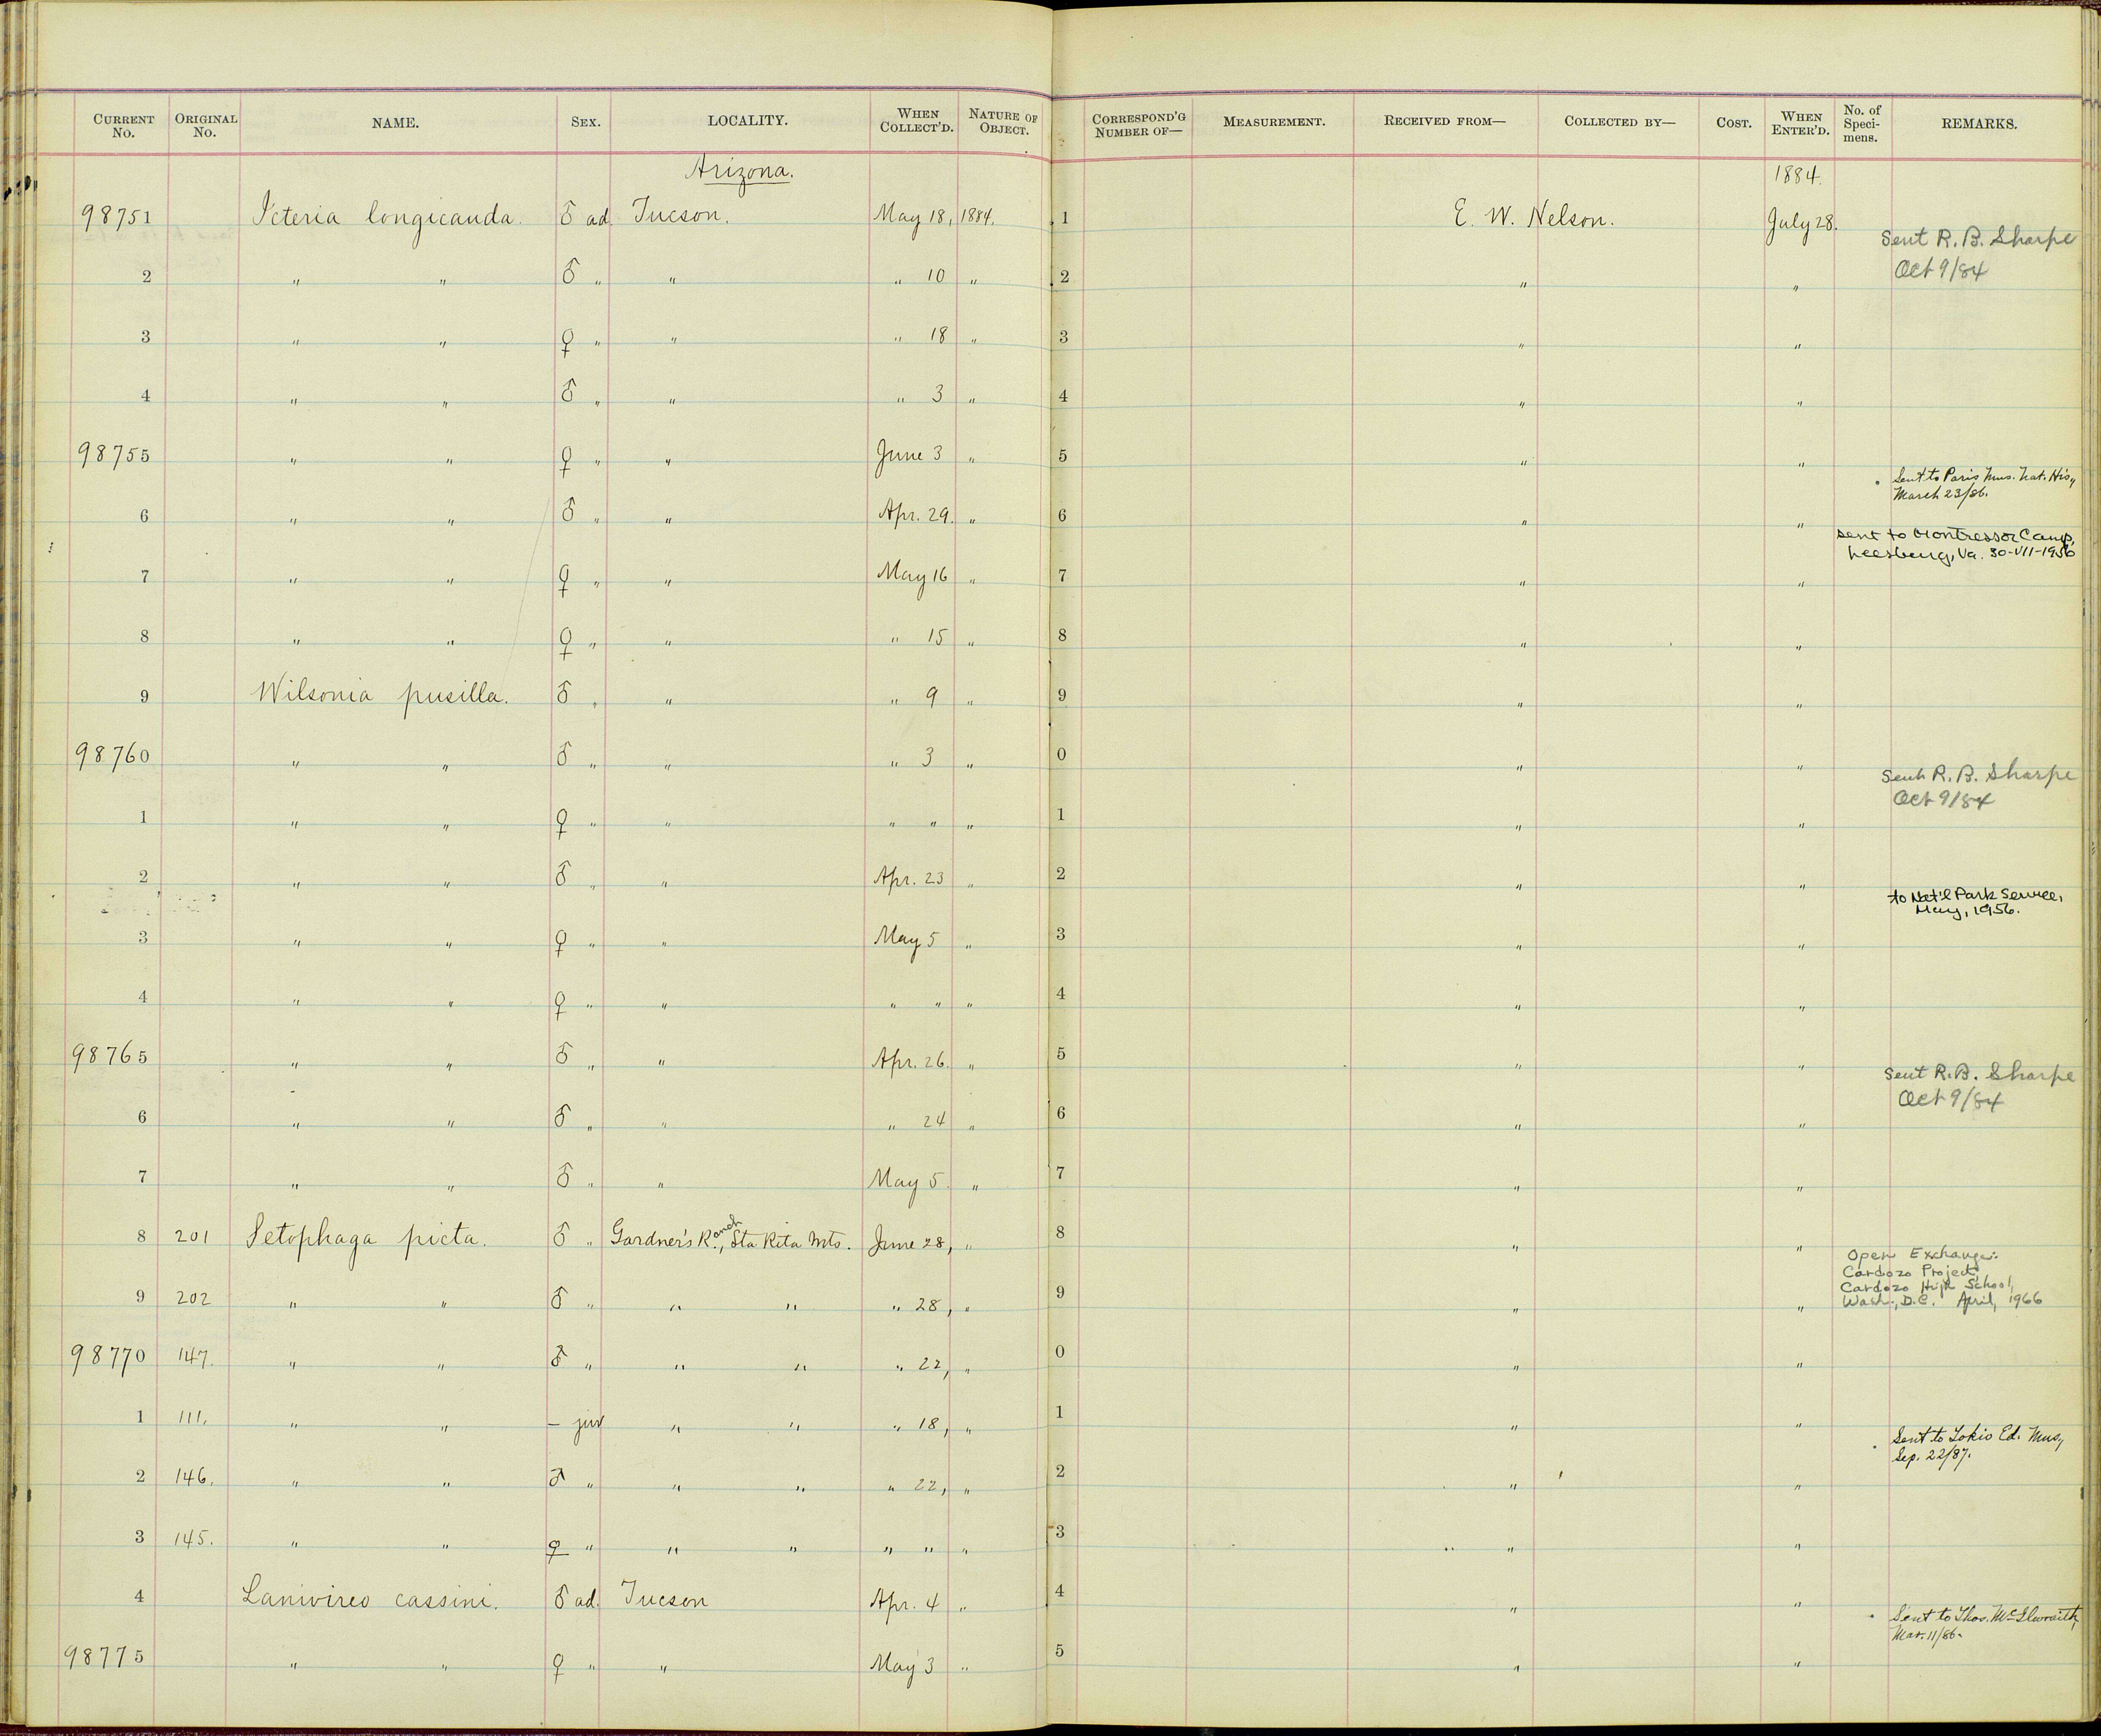 CURRENT No. ORIGINAL No. NAME. SEX. LOCALITY. WHEN COLLECT'D. NATURE OF OBJECT. CORRESPOND'G NUMBER OF— MEASUREMENT. RECEIVED FROM— COLLECTED BY— COST. WHEN ENTER'D. No. of Speci- mens. REMARKS.
Arizona. 1884.
98751 Icteria longicauda. ♂ ad. Tucson. May 18, 1884. 1 E. W. Nelson. July 28. Sent R. B. Sharpe Oct 9/84
2 " " ♂ " " " 10 " 2 " "
3 " " ♀ " " " 18 " 3 " "
4 " " ♂ " " " 3 " 4 " "
98755 " " ♀ " " June 3 " 5 " " Sent to Paris Mus. Nat. His, March 23/86.
6 " " ♂ " " Apr. 29. " 6 " " sent to Montressor Camp, Leesburg, Va. 30-VII-1956
7 " " ♀ " " May 16 " 7 " "
8 " " ♀ " " " 15 " 8 " "
9 Wilsonia pusilla. ♂ " " " 9 " 9 " "
98760 " " ♂ " " " 3 " 0 " " Sent R. B. Sharpe Oct 9/84
1 " " ♀ " " " " " 1 " "
2 " " ♂ " " Apr. 23 " 2 " " to Nat'l Park Service, May, 1956.
3 " " ♀ " " May 5 " 3 " "
4 " " ♀ " " " " " 4 " "
98765 " " ♂ " " Apr. 26. " 5 " " Sent R. B. Sharpe Oct 9/84
6 " " ♂ " " " 24 " 6 " "
7 " " ♂ " " May 5. " 7 " "
8 201 Setophaga picta. ♂ " Gardner's Ranch, Sta Rita Mts. June 28, " 8 " " Open Exchange: Cardozo Project, Cardozo High School, Wash., D.C. April, 1966
9 202 " " ♂ " " " " 28, " 9 " "
98770 147. " " ♂ " " " " 22, " 0 " "
1 111. " " – juv " " " 18, " 1 " " Sent to Tokio Ed. Mus, Sep. 22/87.
2 146. " " ♂ " " " " 22, " 2 " "
3 145. " " ♀ " " " " " " 3 " "
4 Lanivireo cassini. ♂ ad. Tucson Apr. 4 " 4 " " Sent to Thos. McIlwraith, Mar. 11/86.
98775 " " ♀ " " May 3 " 5 " "